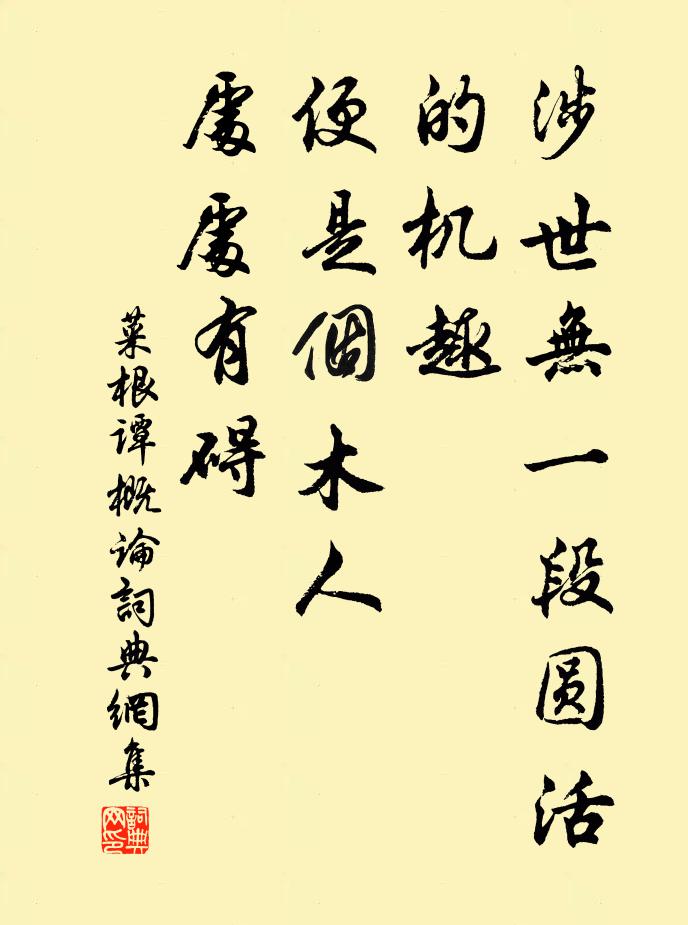 涉世無一段圆活
的机趣
便是個木人
處處有碍
菜根谭概论詞典網集
詞典
网印